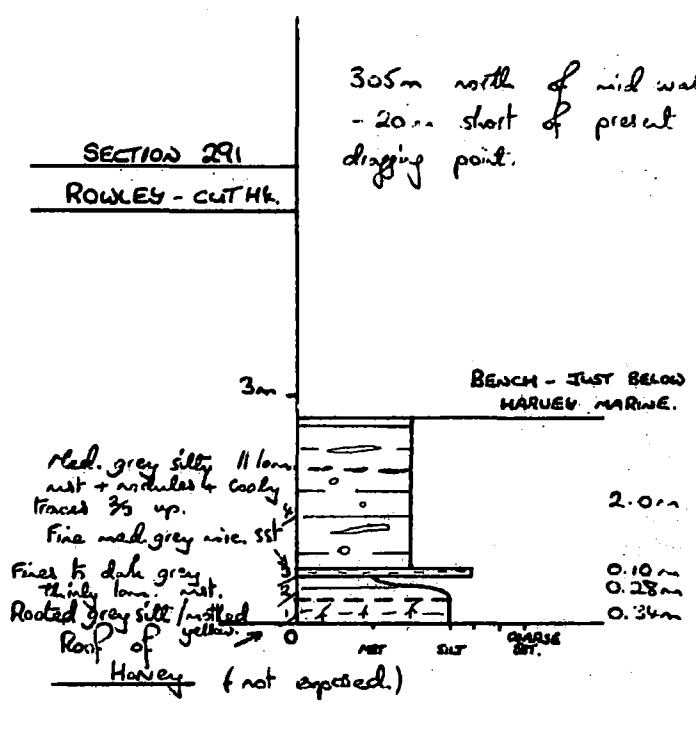 305m north of mid wat
- 20m short of present
dragging point.
SECTION 291
ROWLEY - CUT HK.
3m
BENCH - JUST BELOW
HARVEY MARINE.
Med. grey silty || lam.
mst + nodules + coaly
traces 2/3 up.
4
2.0m
Fine med. grey mic. sst
3
0.10m
Fines to dark grey
thinly lam. mst.
2
0.28m
Rooted grey silt / mottled
yellow.
1
0.34m
Roof of
Harvey (not exposed.)
0
MST
SILT
COARSE
SST.